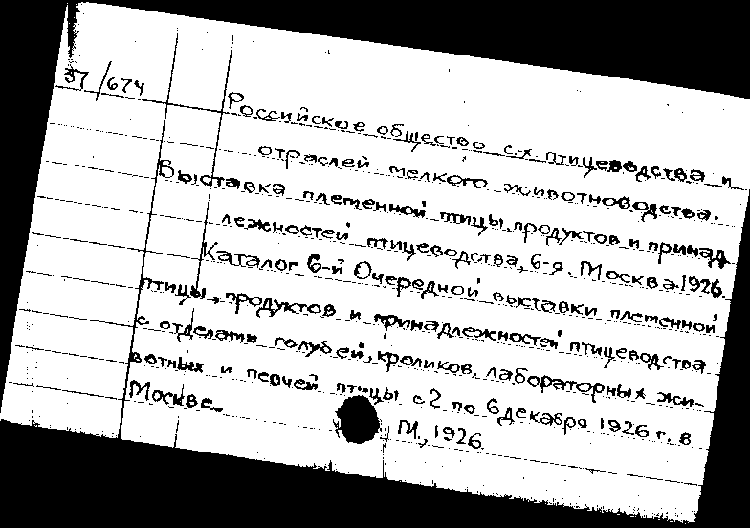 37/674
Российское общество с.-х. птицеводства и
отраслей мелкого животноводства.
Выставка племенной птицы, продуктов и принад
лежностей птицеводства, 6-я. Москва. 1926.
Каталог 6-й Очередной выставки племенной
птицы, продуктов и принадлежностей птицеводства
с отделами голубей, кроликов, лабораторных жи-
вотных и певчей птицы с 2 по 6 декабря 1926 г. в
Москве.
М., 1926.